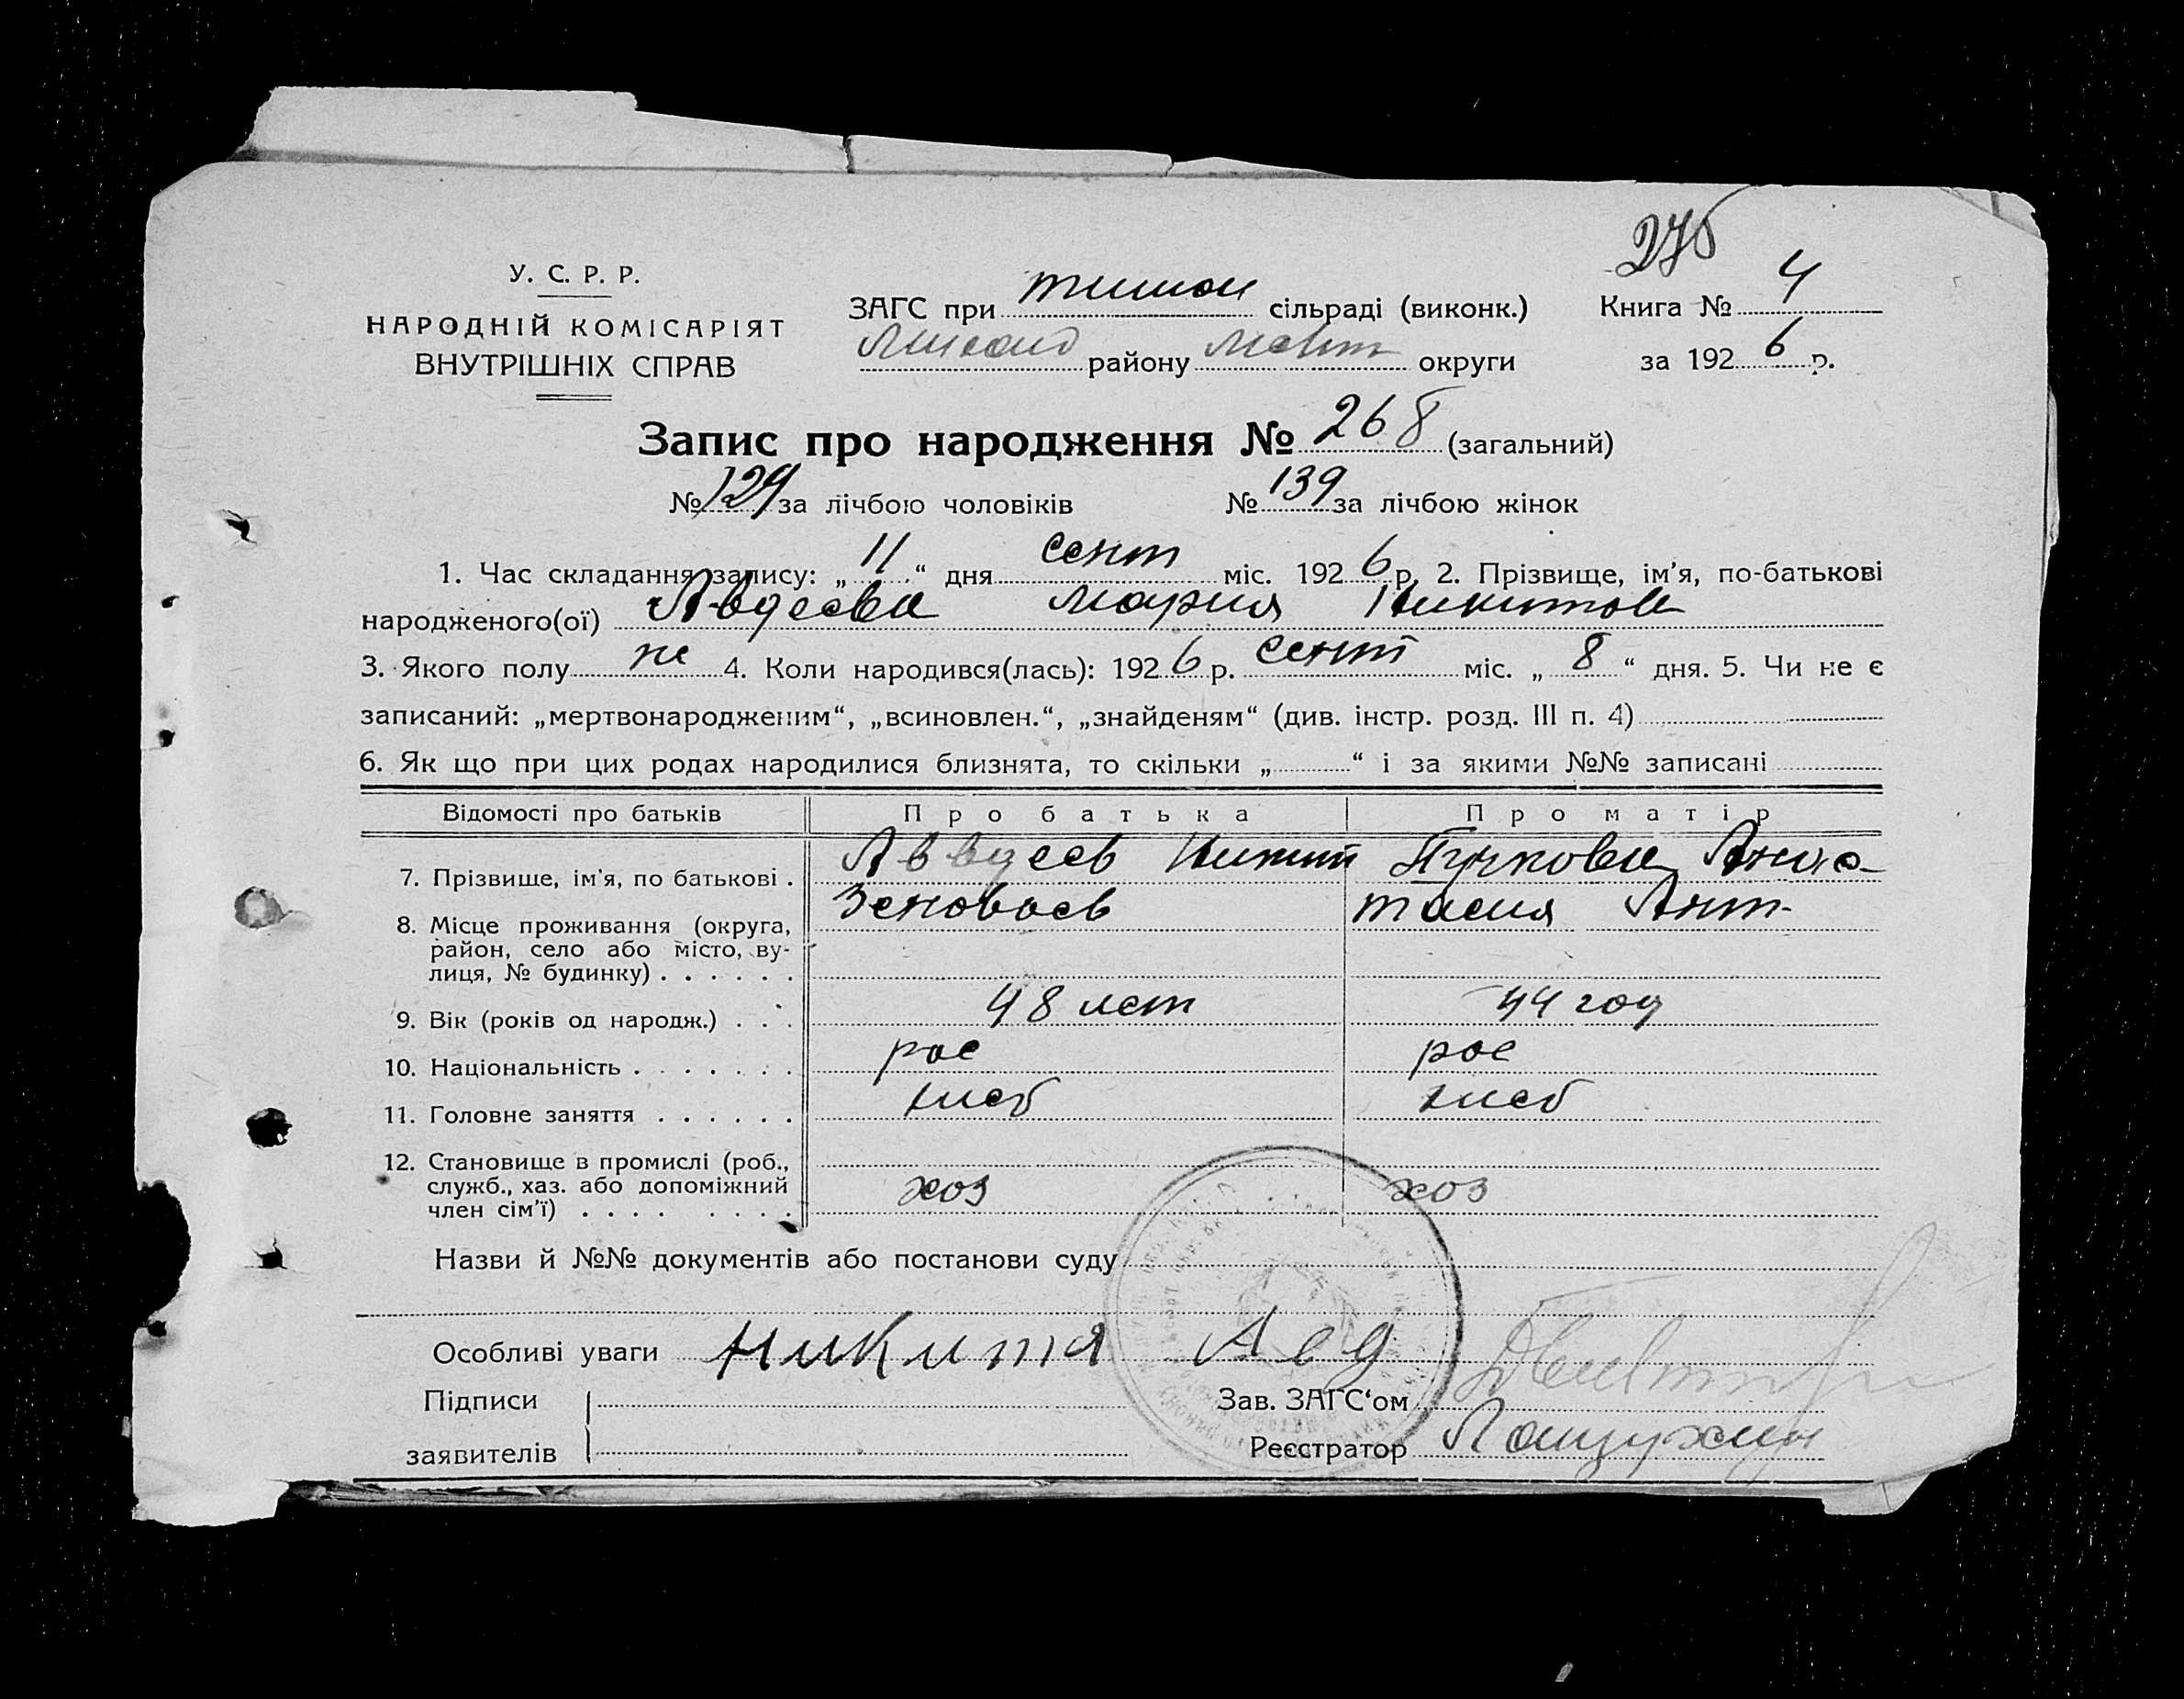 У. С. Р. Р.
НАРОДНІЙ КОМІСАРІЯТ
ВНУТРІШНІХ СПРАВ
ЗАГС при тишон сільраді (виконк.)
Лисанд району округи
276
Книга № 4
за 1926 р.
Запис про народження № 268 (загальний)
№ 129 за лічбою чоловіків № 139 за лічбою жінок
1. Час складання запису: „ 11 “ дня сент міс. 1926 р. 2. Прізвище, ім'я, по-батькові
народженого(ої) Авдеева Мария Никитов
3. Якого полу же 4. Коли народився(лась): 1926 р. сент міс. „ 8 “ дня. 5. Чи не є
записаний: „мертвонародженим“, „всиновлен.“, „знайденям“ (див. інстр. розд. III п. 4)
6. Як що при цих родах народилися близнята, то скільки „ “ і за якими №№ записані
Відомості про батьків Про батька Про матір
7. Прізвище, ім'я, по батькові . Аввдеев Никит Пучкова Анас-
Зеновоев тасия Ант-
8. Місце проживання (округа,
район, село або місто, ву-
лиця, № будинку) . . . . . .
9. Вік (років од народж.) . . . 48 лет 44 год
10. Національність . . . . . . . рос рос
11. Головне заняття . . . . . . хлеб хлеб
12. Становище в промислі (роб.,
служб., хаз. або допоміжний
член сім'ї) . . . . . . . . хоз хоз
Назви й №№ документів або постанови суду
Особливі уваги Никита Авд
Підписи
заявителів
Зав. ЗАГС‘ом
Реєстратор